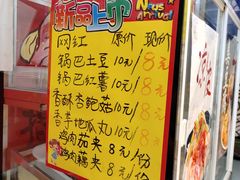 新品上市
News
Arrival
网红 原价 现价
锅巴土豆 10元/8元
锅巴红薯 10元/8元
香酥杏鲍菇 10元/8元
香芋地瓜丸 10元/8元
鸡肉茄夹 8元/份
鸡肉藕夹 8元/份